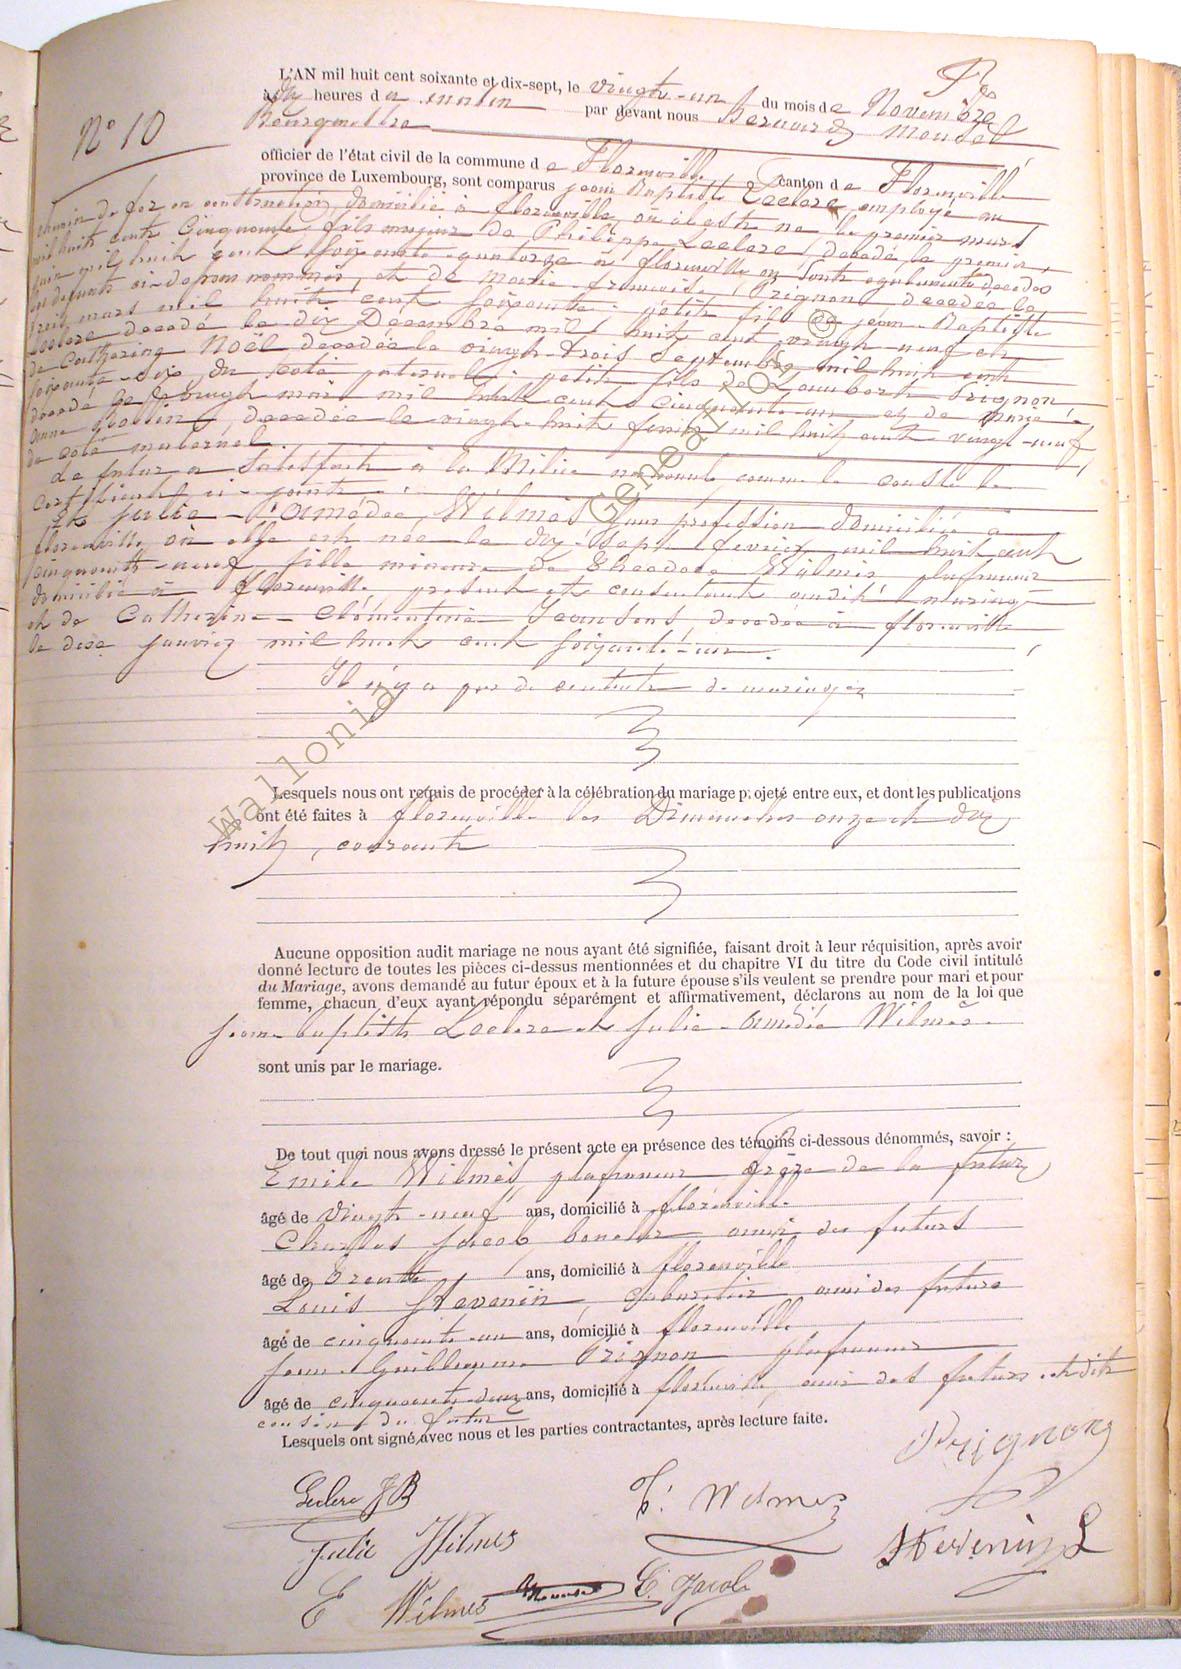 L'AN mil huit cent soixante et dix-sept, le vingt-un du mois de Novembre
à dix heures du matin par devant nous Bernard Mousel
Bourgmestre
N° 10
officier de l'état civil de la commune de Florenville canton de Florenville
province de Luxembourg, sont comparus jean Baptiste Leclere employé au
chemin de fer en construction, domicilié à florenville, où il est né le premier mars
mil huit cent Cinquante, fils majeur de Philippe Leclere, décédé le premier
juin mil huit cent soixante quatorze à florenville où sont également décédés
les défunts ci-dessous nommés, et de Marie françoise Prignon décédée le
treize mars mil huit cent soixante; petit fils de jean-Baptiste
Leclere décédé le dix Décembre mil huit cent vingt-neuf et
de Catherine Noël décédée le vingt-trois Septembre mil huit cent
soixante-six du coté paternel; petit fils de Lambert Prignon
décédé le vingt mai mil huit cent Cinquante-un et de marie
anne décédée le vingt-huit février mil huit cent vingt-neuf,
du coté maternel.
Le futur a satisfait à la Milice nationale comme le constate le
certificat ci-joint.
Et Julie-Amédée Wilmès sans profession domiciliée à
florenville où elle est née le dix-sept février mil huit cent
cinquante-neuf, fille mineure de Théodore Wilmès, plafonneur
domicilié à florenville, présent et consentant audit mariage
et de Catherine-Clémentine Jeansons, décédée à florenville,
le deux janvier mil huit cent soixante-un.
Il n'y a pas de contrat de mariage
Lesquels nous ont requis de procéder à la célébration du mariage projeté entre eux, et dont les publications
ont été faites à florenville les Dimanches onze et dix
huit, courant
Aucune opposition audit mariage ne nous ayant été signifiée, faisant droit à leur réquisition, après avoir
donné lecture de toutes les pièces ci-dessus mentionnées et du chapitre VI du titre du Code civil intitulé
du Mariage, avons demandé au futur époux et à la future épouse s'ils veulent se prendre pour mari et pour
femme, chacun d'eux ayant répondu séparément et affirmativement, déclarons au nom de la loi que
jean-baptiste Leclere et Julie-Amédée Wilmès
sont unis par le mariage.
De tout quoi nous avons dressé le présent acte en présence des témoins ci-dessous dénommés, savoir :
Emile Wilmès, plafonneur frère de la future
âgé de vingt-neuf ans, domicilié à florenville
Charles Jacob, amis des futurs
âgé de trente ans, domicilié à florenville
Louis Stevenin, Cabaretier, ami des futurs
âgé de cinquante-un ans, domicilié à florenville
jean Guillaume Prignon plafonneur
âgé de cinquante-deux ans, domicilié à florenville, ami des futurs et dit
cousin du futur
Lesquels ont signé avec nous et les parties contractantes, après lecture faite.
Prignon
Leclere JB
T. Wilmes
Julie Wilmes
Stevenin L
E Wilmes
Mousel
C. Jacob
Wallonia Genealogie ©